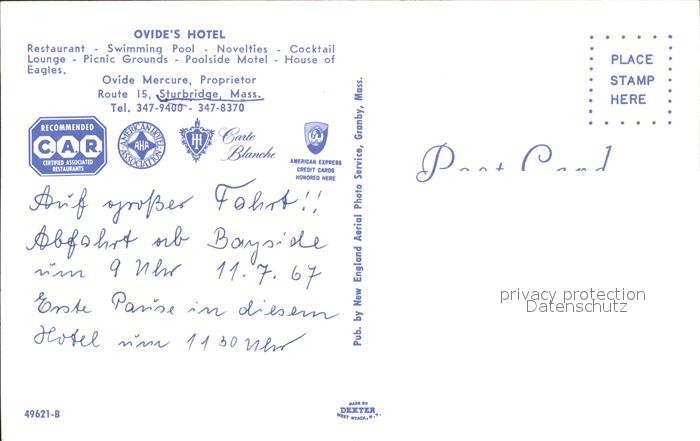 OVIDE'S HOTEL
Restaurant - Swimming Pool - Novelties - Cocktail
Lounge - Picnic Grounds - Poolside Motel - House of
Eagles.
Ovide Mercure, Proprietor
Route 15, Sturbridge, Mass.
Tel. 347-9400 - 347-8370
RECOMMENDED
C.A.R.
CERTIFIED ASSOCIATED
RESTAURANTS
AMERICAN HOTEL
AHA
ASSOCIATION
Carte
Blanche
AMERICAN EXPRESS
CREDIT CARDS
HONORED HERE
Auf großer Fahrt!!
Abfahrt ab Bayside
um 9 Uhr 11.7.67
Erste Pause in diesem
Hotel um 11 30 Uhr
49621-B
Pub. by New England Aerial Photo Service, Granby, Mass.
MADE BY
DEXTER
WEST NYACK, N.Y.
PLACE
STAMP
HERE
Post Card
privacy protection
Datenschutz